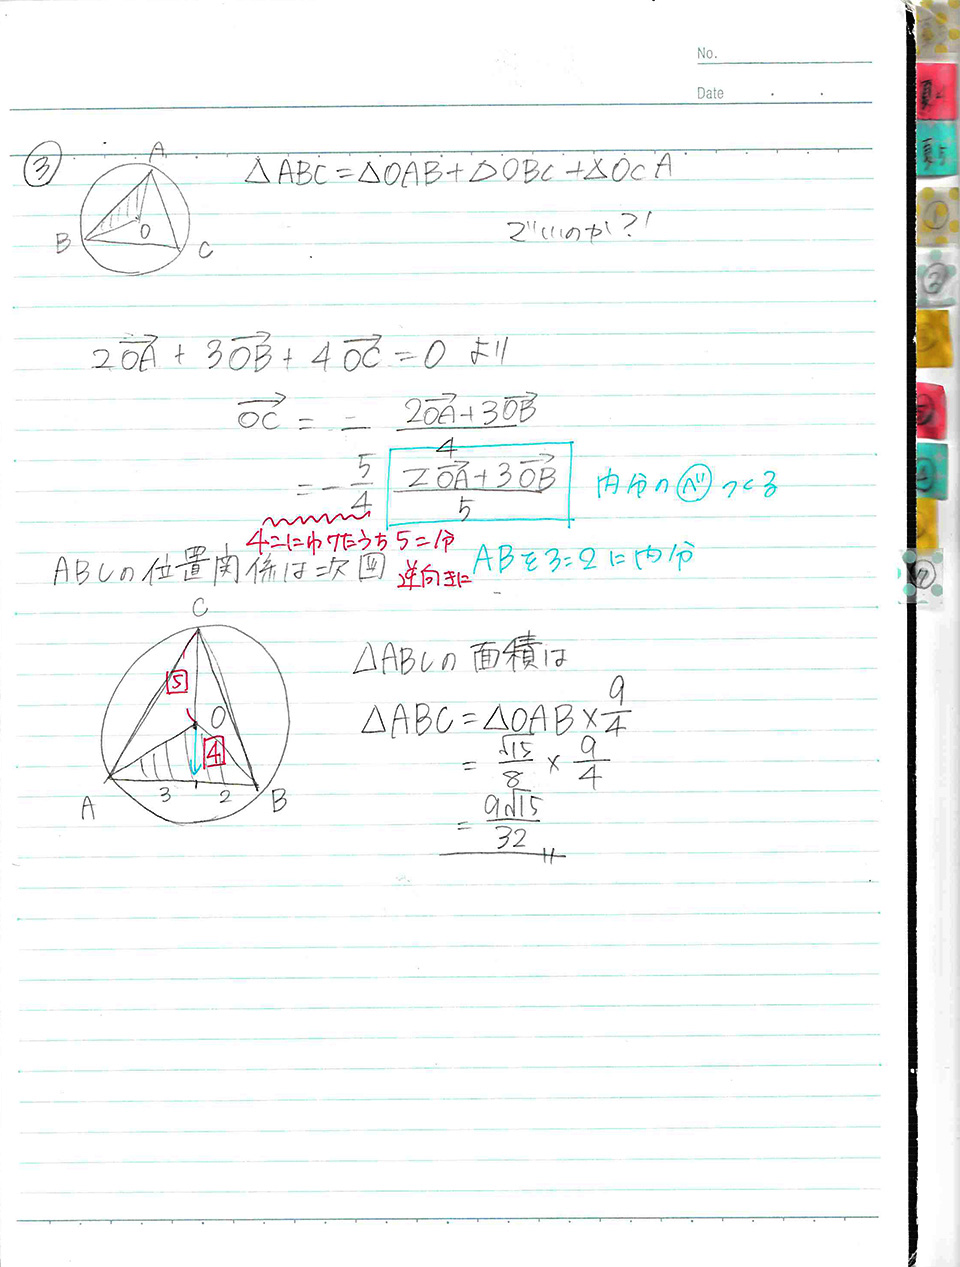 No.
Date
③
A
B
O
C
△ABC=△OAB+△OBC+△OCA
でいいのか?!
2OA + 3OB + 4OC = 0 より
OC = - 2OA+3OB / 4
= - 5/4 2OA+3OB / 5 内分のベつくる
4こにわけたうち5こ分
逆向きに
ABを3:2に内分
ABCの位置関係は次図
C
5
O
4
A
3
2
B
△ABCの面積は
△ABC=△OAB×9/4
= √15/8 × 9/4
= 9√15/32
①
②